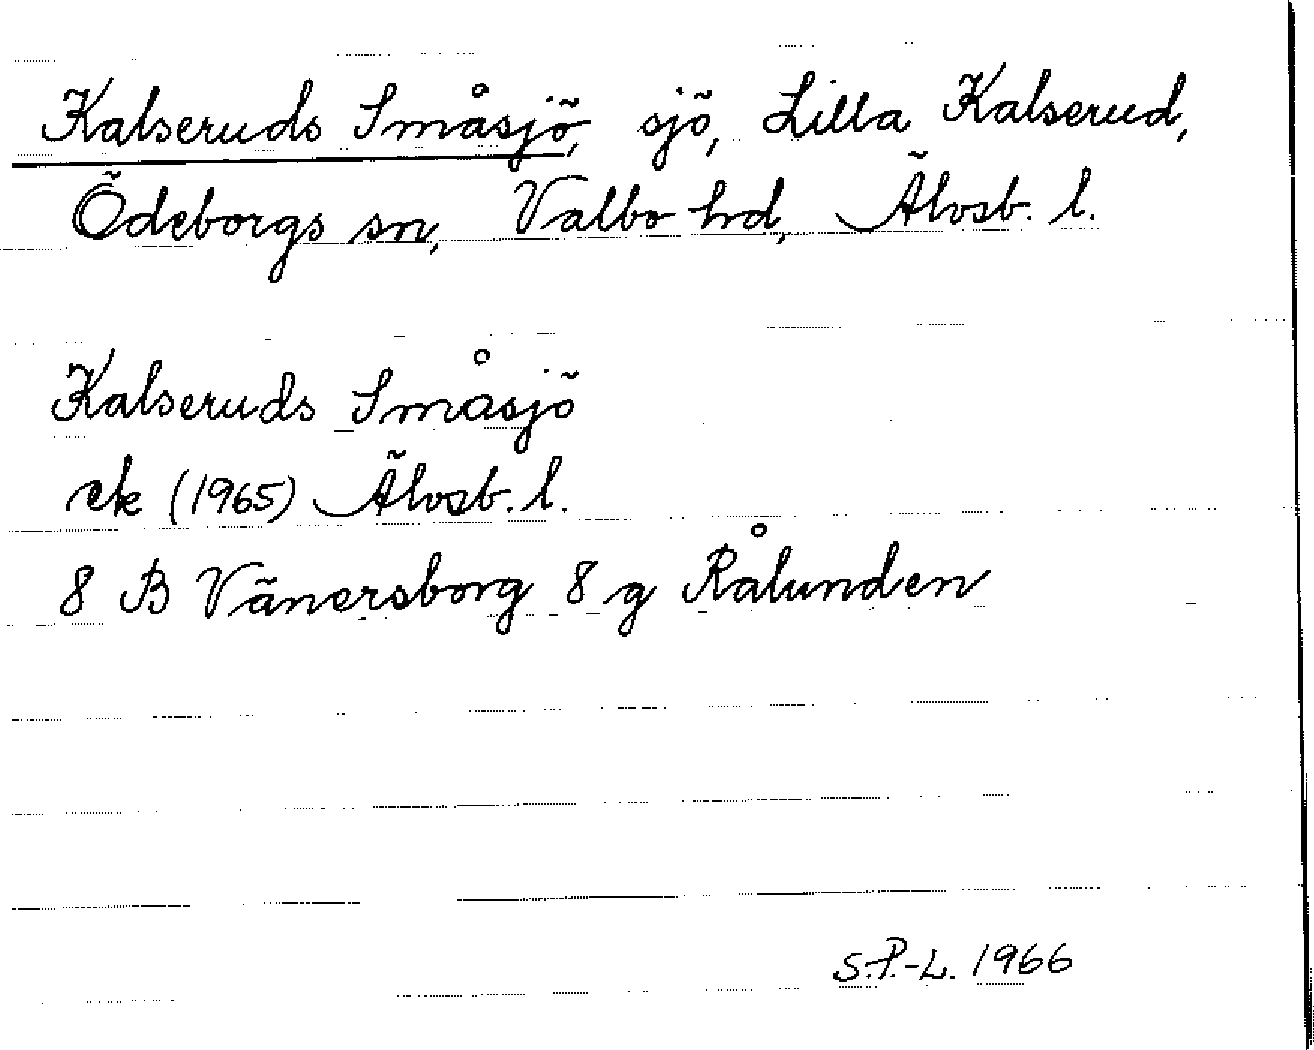 Kalseruds Småsjö, sjö, Lilla Kalserud,
Ödeborgs sn, Valbo hd, Älvsb. l.
Kalseruds Småsjö
ek (1965) Älvsb. l.
8 B Vänersborg 8 g Rålunden
S.P.-L. 1966